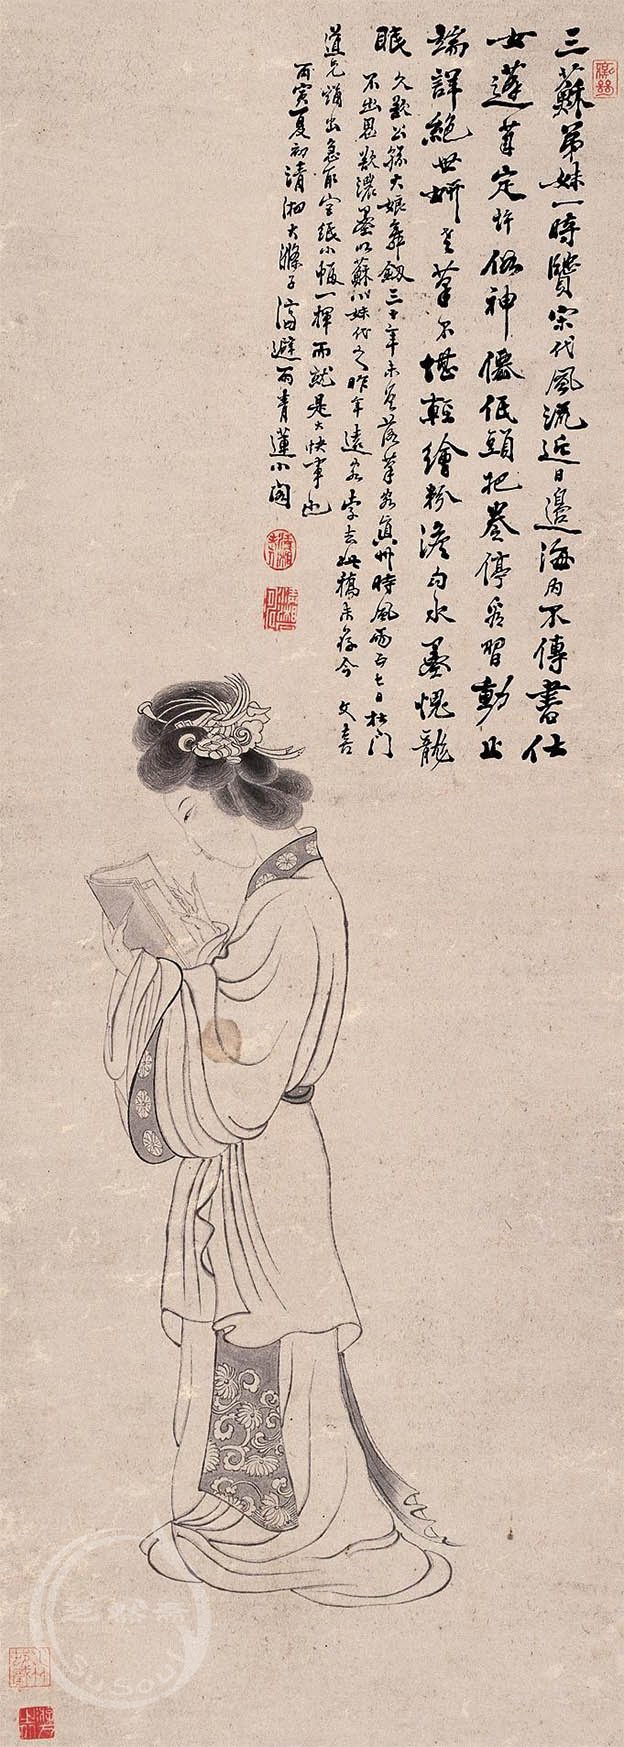 三蘇弟妹一時贒宋代風流近日邊海內不傳書仕
女蓬萊定許似神僊低頭把卷停看習動止
端詳絕世妍老筆不堪輕繪粉澹勻水墨愧龍
眠 久欲公孫大娘舞劔三十年未曾落筆客真州時風雨正七日杜门
不出思欲濃墨以蘇小妹代之昨年遠客索去此稿未存今 文喜
道兄過出急取宣紙小幅一揮而就是大快事也
丙寅夏初清湘大滌子濟避雨青蓮小閣
SuSouth